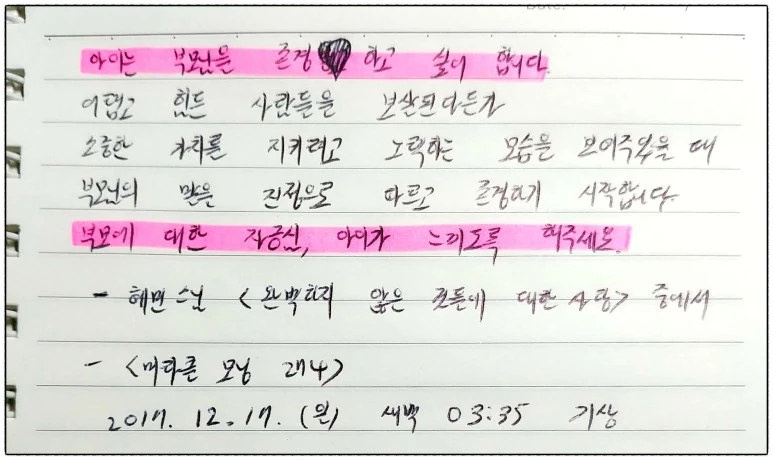 Date.
아이는 부모님을 존경 하고 싶어 합니다.
어렵고 힘든 사람들을 보살핀다든가
소중한 가치를 지키려고 노력하는 모습을 보여주었을 때
부모님의 말을 진정으로 따르고 존경하기 시작합니다.
부모에 대한 자긍심, 아이가 느끼도록 해주세요.
- 혜민스님 <완벽하지 않은 것들에 대한 사랑> 중에서
- <미라클 모닝 274>
2017. 12. 17. (일) 새벽 03:35 기상